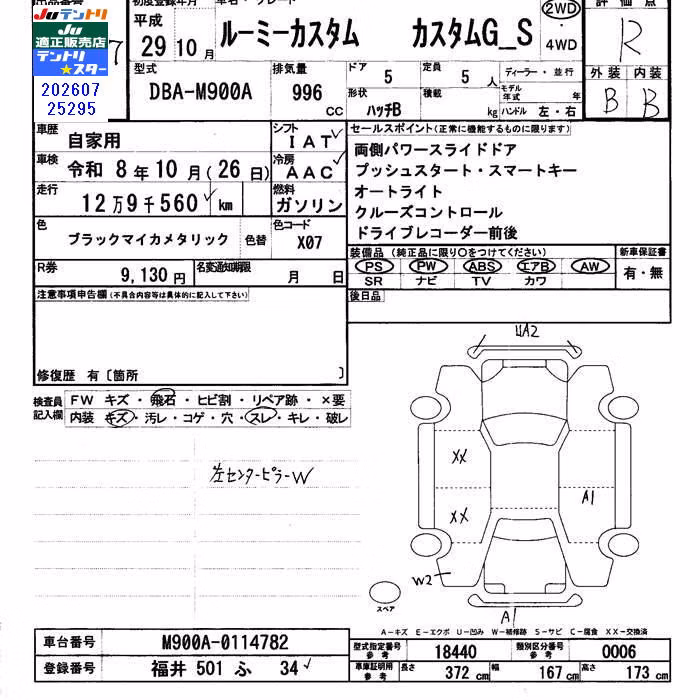 Juテントリ
Ju
適正販売店
テントリ
★スター
202607
25295
7
初度登録年月
平成
29年10月
ルーミーカスタム カスタムG_S
2WD
・
4WD
評価点
R
型式
DBA-M900A
排気量
996
CC
ドア
5
定員
5 人
形状
ハッチB
積載
kg
ディーラー・並行
モデル年式 年
ハンドル 左・右
外装 内装
B B
車歴
自家用
シフト
IAT
車検
令和 8年10月(26日)
冷房
AAC
走行
12万9千560 km
燃料
ガソリン
色
ブラックマイカメタリック
色替
色コード
X07
R券
9,130円
名変通知期限
月 日
セールスポイント(正常に機能するものに限ります)
両側パワースライドドア
プッシュスタート・スマートキー
オートライト
クルーズコントロール
ドライブレコーダー前後
装備品(純正品に限り〇をつけてください)
PS PW ABS エアB AW
SR ナビ TV カワ
新車保証書
有・無
後日品
注意事項申告欄(不具合内容等は具体的に記入して下さい)
修復歴 有〔箇所 〕
検査員
記入欄
FW キズ・飛石・ヒビ割・リペア跡・×要
内装 キズ・汚レ・コゲ・穴・スレ・キレ・破レ
左センターピラーW
UA2
XX
XX
A1
W2
A1
スペア
A-キズ E-エクボ U-凹み W-補修跡 S-サビ C-腐食 XX-交換済
車台番号
M900A-0114782
登録番号
福井 501 ふ 34
型式指定番号
参考
18440
類別区分番号
参考
0006
車庫証明用
参考
長さ
372 cm
幅
167 cm
高さ
173 cm